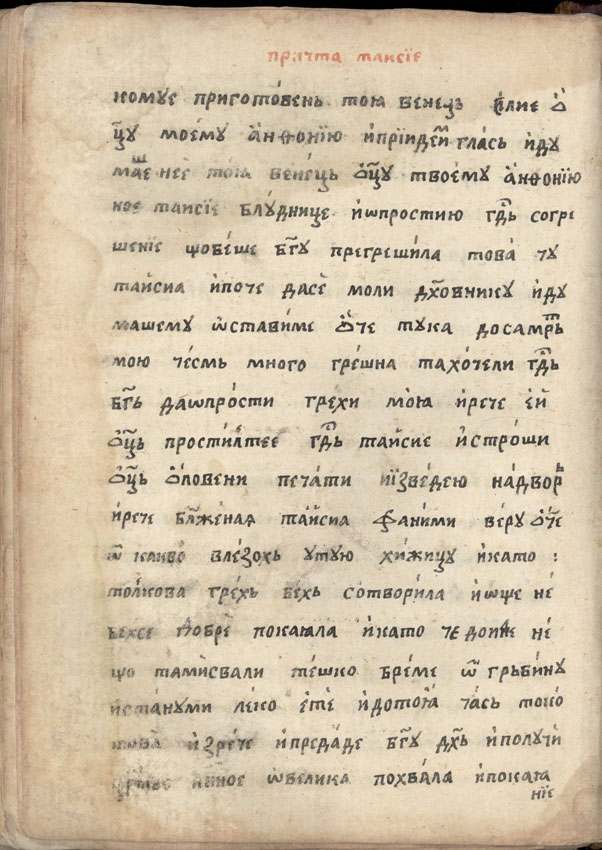 прⷣчта таисїе
комуе приготовень тоꙗ венець илие ѻ҆
ц҃у моемꙋ а҆нѳонїю и҆прїиде глась и҆дꙋ
нее тоꙗ венець ѻ҆ц҃ꙋ твоемꙋ а҆нѳонїю
таисїе блꙋднице и҆ѡпростию гдⷭ҇ь согре
шенїе щобеше бг҃ꙋ прегрешила това чꙋ
таисиа и҆поче дасе моли дх҃овникꙋ и҆дꙋ
машемꙋ ѡ҆ставиме ѻ҆че тꙋка досамрⸯть
мою чесмь много грешна тахочели гдⷭ҇ь
бг҃ь даѡпрости грехи моꙗ и҆рече ей
ѻ҆ц҃ь простилтее гдⷭ҇ь таисие и҆строши
ѻ҆ц҃ь ѻ҆ловени печати и҆изведею надворь
и҆рече бл҃женая таисиа фаними верꙋ ѻ҆че
ѿ какво влезохь ꙋтꙋю хижицꙋ и҆като :
толкова грехь бехь сотворила и҆ѡще не
бехсе добре покаꙗла и҆като че дойде не
що тамисвали тешко бреме ѿ грьбинꙋ
и҆станꙋми леко ете и҆дотоꙗ чась токо
това и҆зрече и҆предаде бг҃ꙋ дх҃ь и҆полꙋчи
црⷭ҇тво нбⷭ҇ное ѡ҆велика похвала и҆покаꙗ
нїе